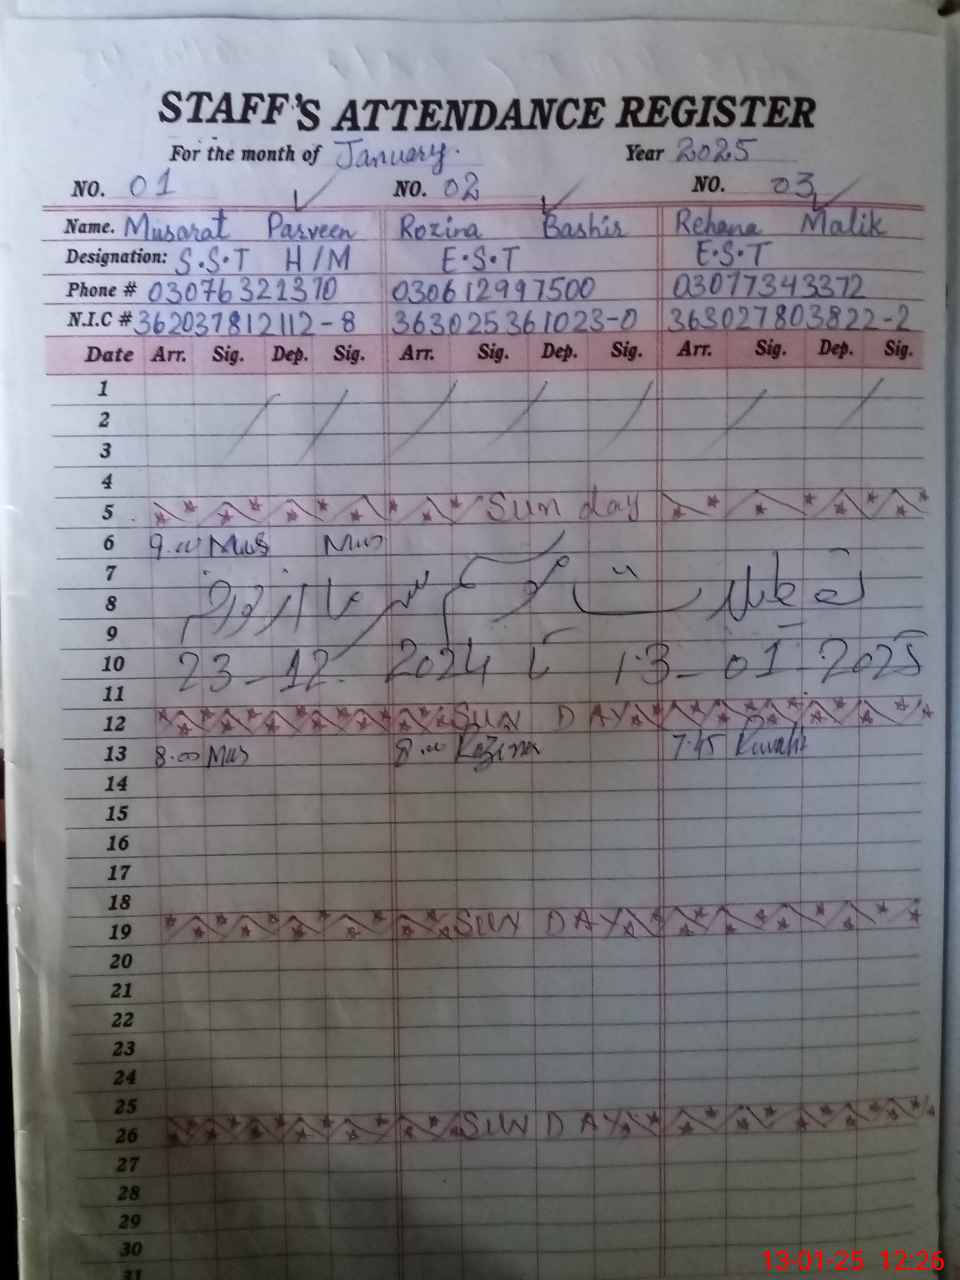 STAFF'S ATTENDANCE REGISTER
For the month of January. Year 2025
NO. 01 NO. 02 NO. 03
Name. Musarat Parveen Rozina Bashir Rehana Malik
Designation: S.S.T H/M E.S.T E.S.T
Phone # 03076321370 030612997500 03077343372
N.I.C # 362037812112-8 363025361023-0 363027803822-2
Date Arr. Sig. Dep. Sig. Arr. Sig. Dep. Sig. Arr. Sig. Dep. Sig.
1
2
3
4
5 Sunday
6 9.00 Mus Mus
7
8 تعطیلات
9
10 23-12-2024 تا 13-01-2025
11
12 SUN DAY
13 8.00 Mus 8.00 Rozina 7.45
14
15
16
17
18
19 SUN DAY
20
21
22
23
24
25
26 SUN DAY
27
28
29
30
31
13-01-25 12:26